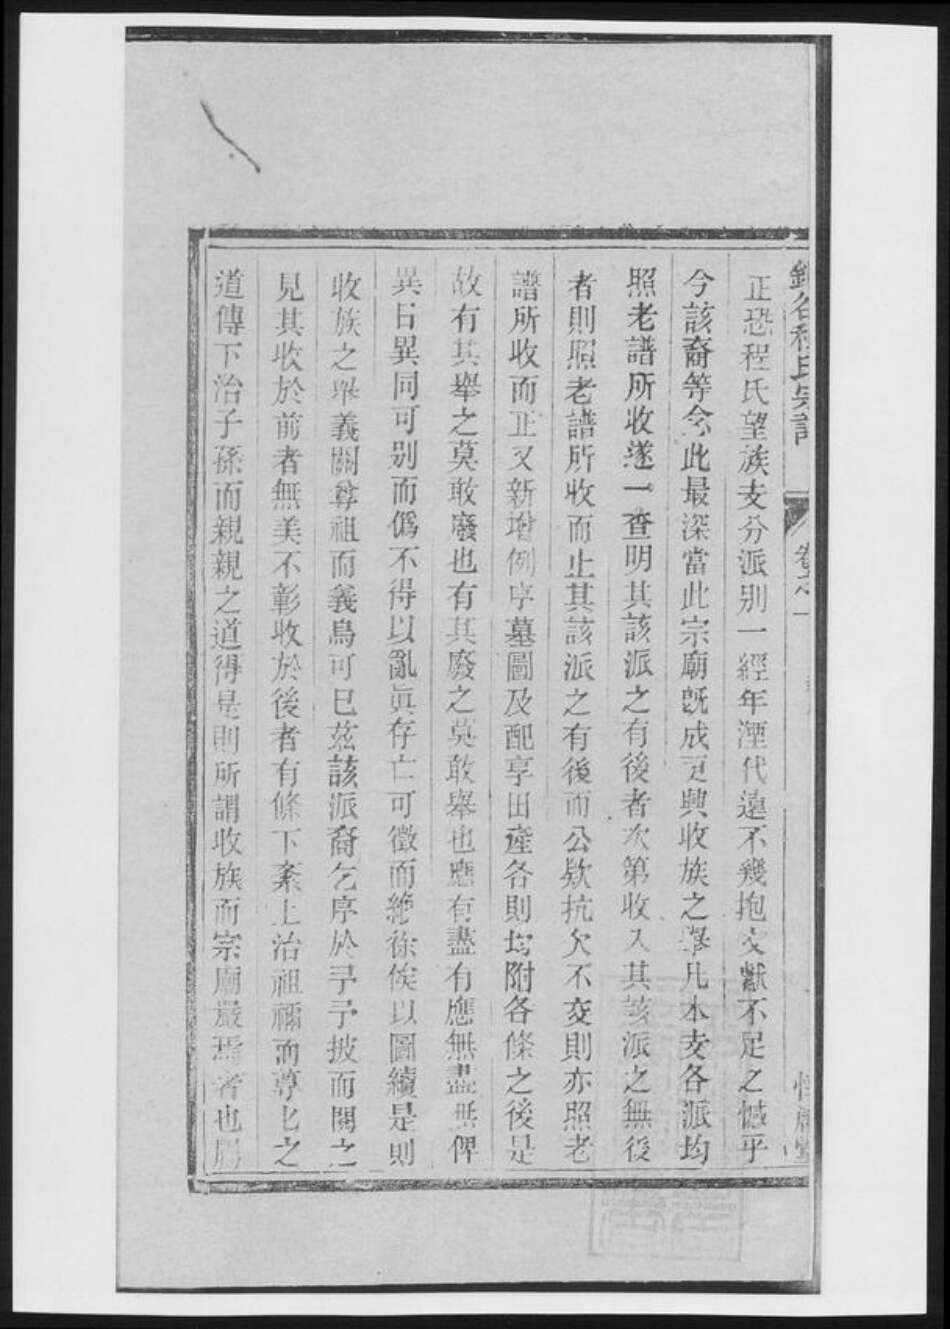 程氏宗譜 卷之一
正恐程氏望族支分派別一經年湮代遠不幾抱文獻不足之憾乎
今該裔等念此最深當此宗廟既成更興收族之舉凡本支各派均
照老譜所收遂一查明其該派之有後者次第收入其該派之無後
者則照老譜所收而止其該派之有後而公欵抗欠不交則亦照老
譜所收而止又新增例序墓圖及配享田產各則均附各條之後是
故有其舉之莫敢廢也有其廢之莫敢舉也應有盡有應無盡無俾
異日異同可别而僞不得以亂眞存亡可徵而絶徐俟以圖續是則
收族之舉義關尊祖而義烏可已兹該派裔乞序於予予披而閱之
見其收於前者無美不彰收於後者有條下紊上治祖禰而尊尊之
道傳下治子孫而親親之道得是則所謂收族而宗廟嚴焉者也